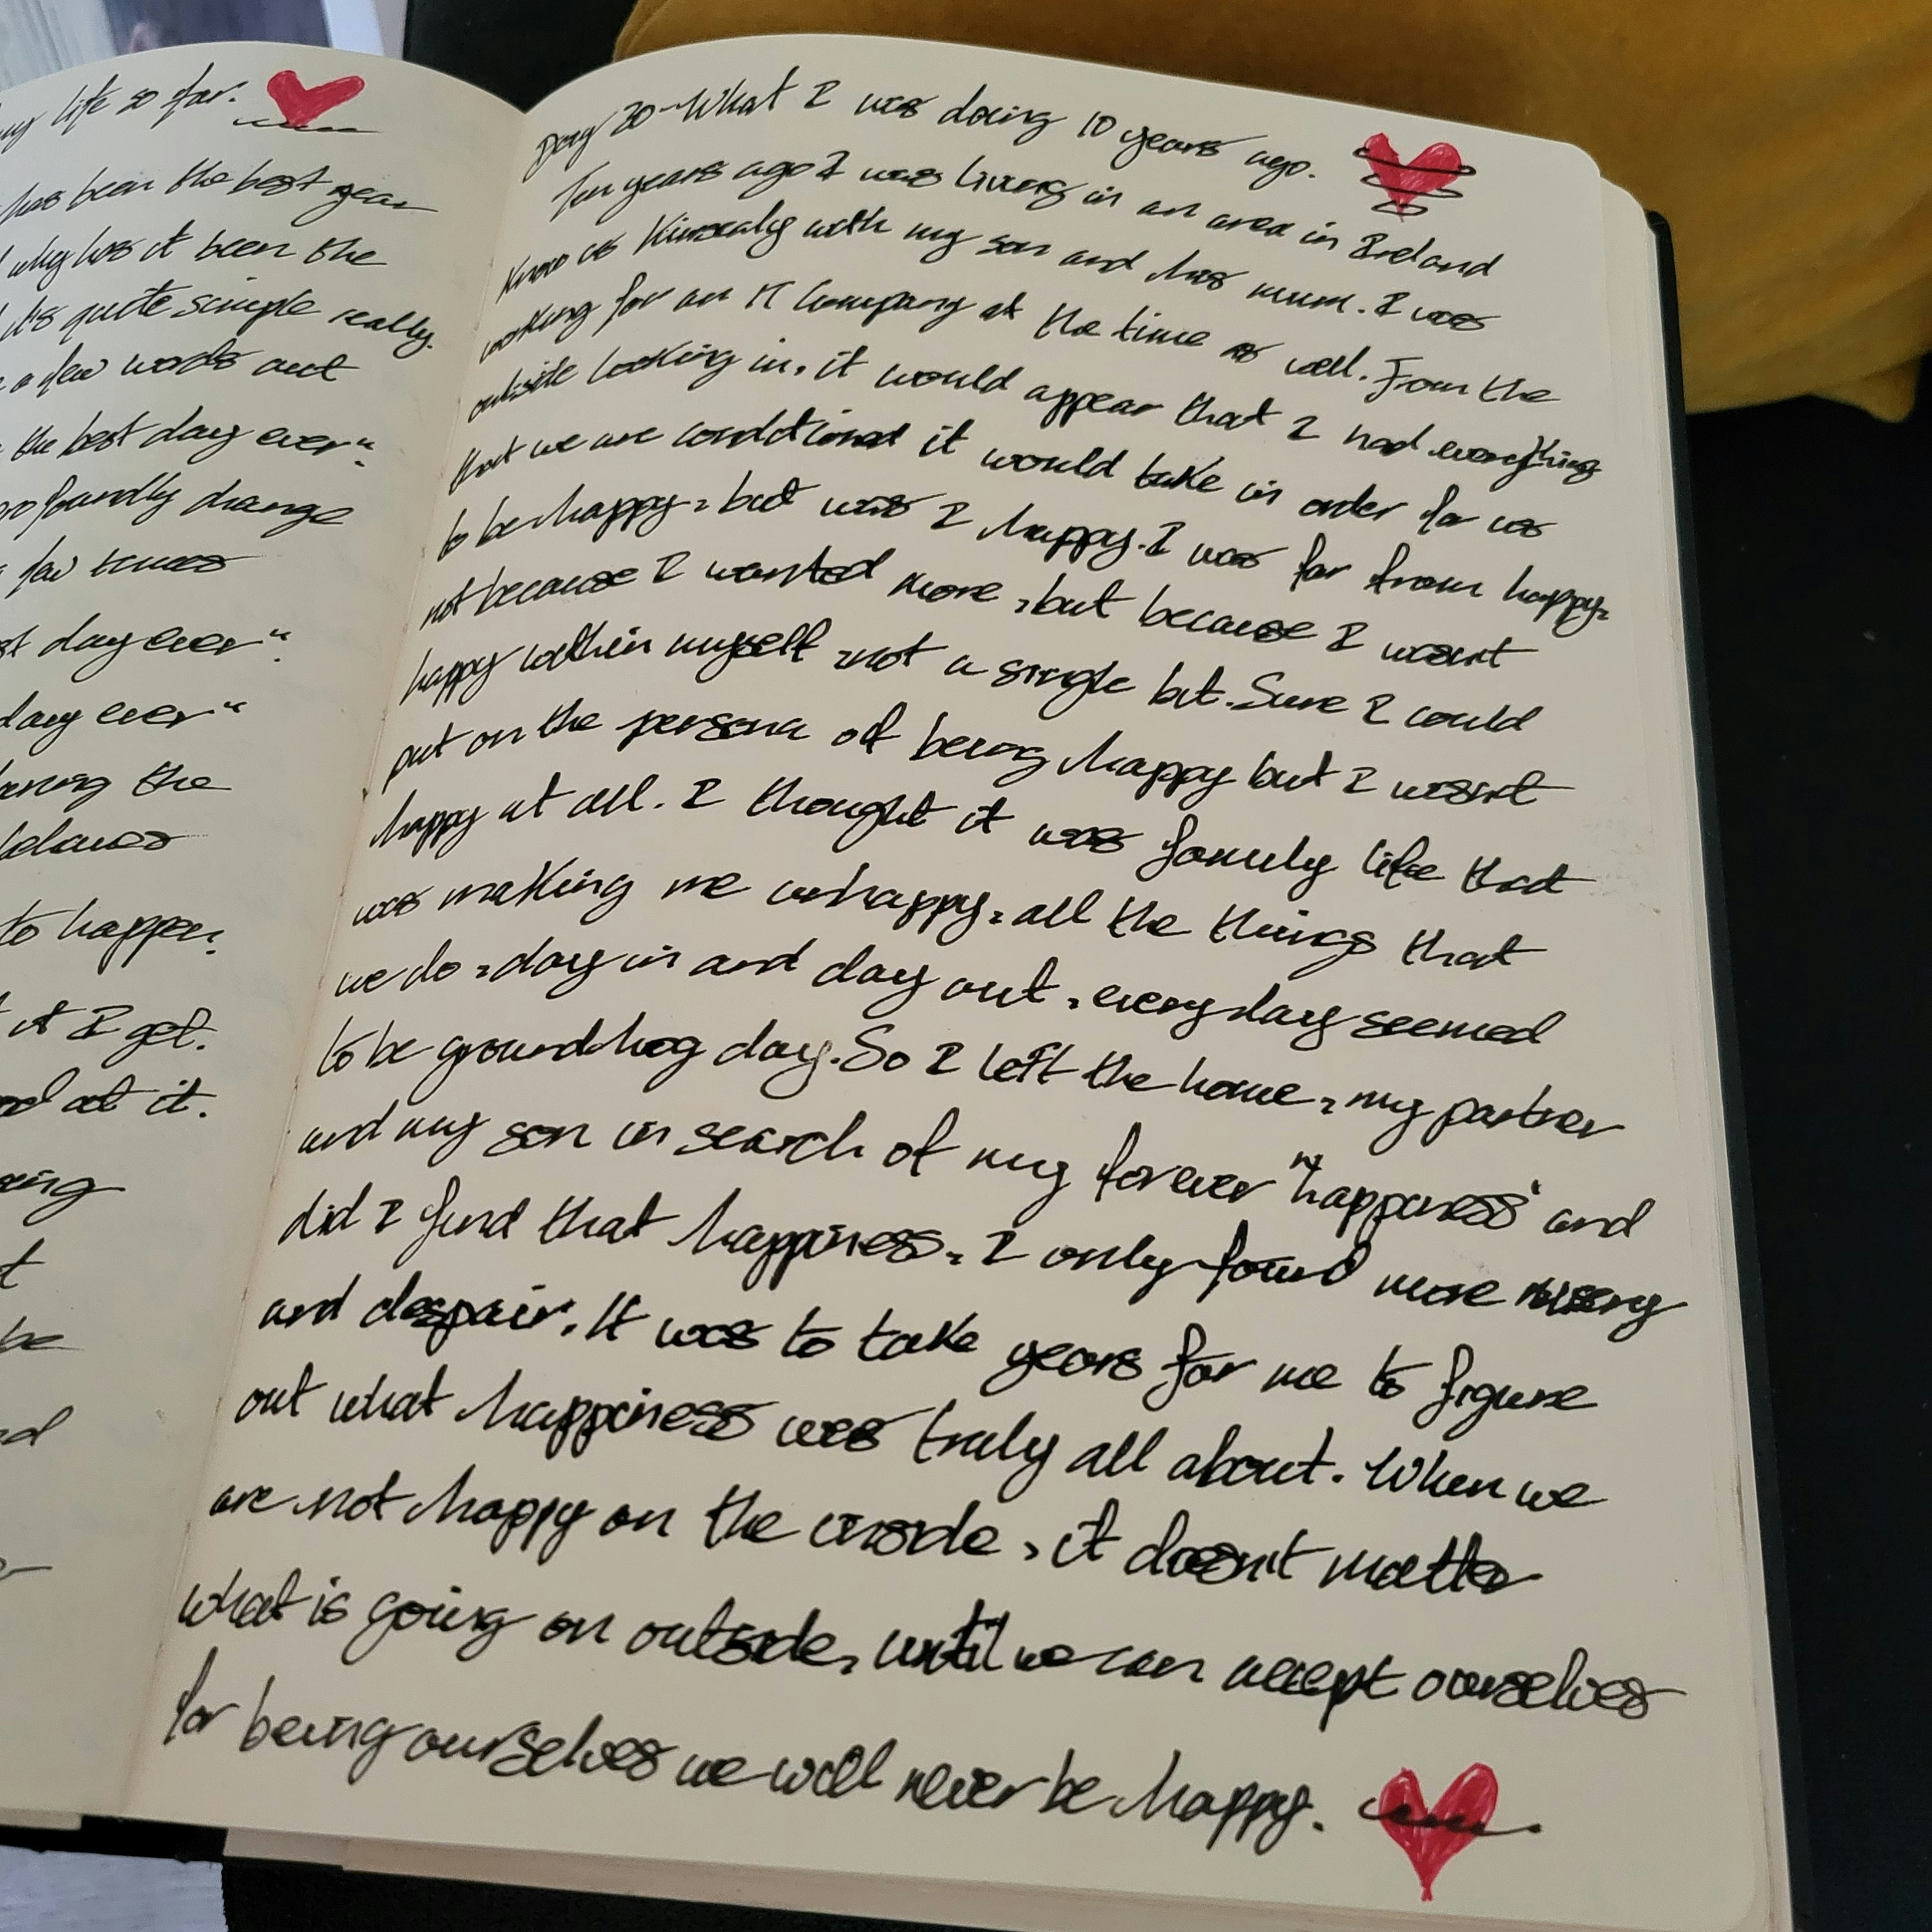 my life so far.
has been the best year
why has it been the
it's quite simple really.
a few words out
the best day ever".
profoundly change
few times
day ever".
day ever"
the
to happen.
it I get.
at it.
t
be
Day 30 - What I was doing 10 years ago.
Ten years ago I was living in an area in Ireland
know as Kinsealy with my son and his mum. I was
working for an IT company at the time as well. From the
outside looking in, it would appear that I had everything
that we are conditioned it would take in order for us
to be happy, but was I happy. I was far from happy,
not because I wanted more, but because I wasn't
happy within myself, not a single bit. Sure I could
put on the persona of being happy but I wasn't
happy at all. I thought it was family life that
was making me unhappy, all the things that
we do, day in and day out, every day seemed
to be groundhog day. So I left the home, my partner
and my son in search of my forever "happiness" and
did I find that happiness, I only found more misery
and despair. It was to take years for me to figure
out what happiness was truly all about. When we
are not happy on the inside, it doesn't matter
what is going on outside, until we can accept ourselves
for being ourselves we will never be happy.